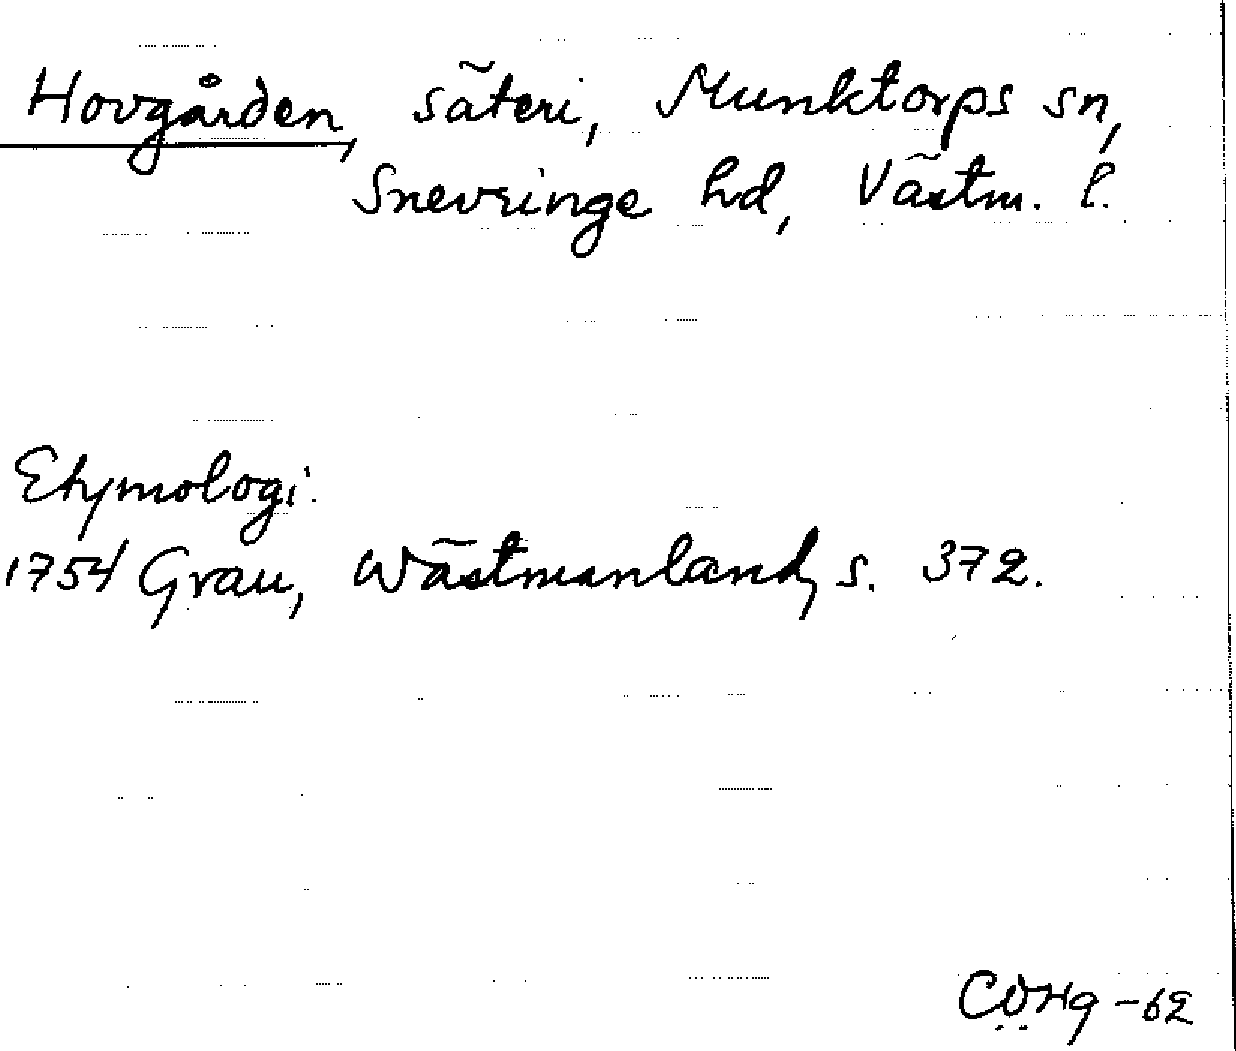 Hovgården, säteri, Munktorps sn,
Snevringe hd, Västm. l.
Etymologi:
1754 Grau, Wästmanland, s. 372.
CÖHg -62